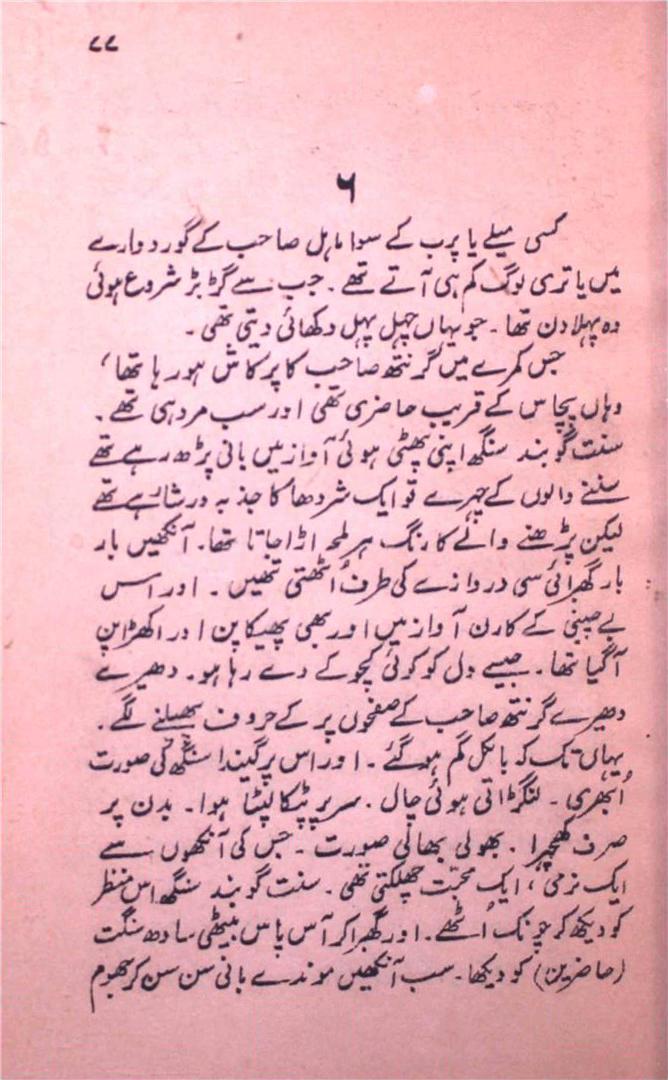 ۷۷
۶
کسی میلے یا پرب کے سوا ماہل صاحب کے گوردوارے
میں یاتری لوگ کم ہی آتے تھے۔ جب سے گڑبڑ شروع ہوئی
وہ پہلا دن تھا۔ جو یہاں چہل پہل دکھائی دیتی تھی۔
جس کمرے میں گرنتھ صاحب کا پرکاش ہو رہا تھا،
وہاں پچاس کے قریب حاضری تھی اور سب مرد ہی تھے۔
سنت گوبند سنگھ اپنی پھٹی ہوئی آواز میں بانی پڑھ رہے تھے
سننے والوں کے چہرے تو ایک شردھا کا جذبہ درشا رہے تھے
لیکن پڑھنے والے کا رنگ ہر لمحہ اڑا جاتا تھا۔ آنکھیں بار
بار گھبرائی سی دروازے کی طرف اُٹھتی تھیں۔ اور اس
بے چینی کے کارن آواز میں اور بھی پھیکا پن اور اکھڑا پن
آگیا تھا۔ جیسے دل کو کوئی کچوکے دے رہا ہو۔ دھیرے
دھیرے گرنتھ صاحب کے صفحوں پر کے حروف پھیلنے لگے۔
یہاں تک کہ بالکل گم ہو گئے۔ اور اس پر گیندا سنگھ کی صورت
اُبھری۔ لنگڑاتی ہوئی چال۔ سر پر پٹکا لپٹا ہوا۔ بدن پر
صرف کچھیرا۔ بھولی بھالی صورت۔ جس کی آنکھوں سے
ایک نرمی، ایک محبت چھلکتی تھی۔ سنت گوبند سنگھ اس منظر
کو دیکھ کر چونک اُٹھے۔ اور گھبرا کر آس پاس بیٹھی سادھ سنگت
(حاضرین) کو دیکھا۔ سب آنکھیں موندے بانی سن سن کر جھوم